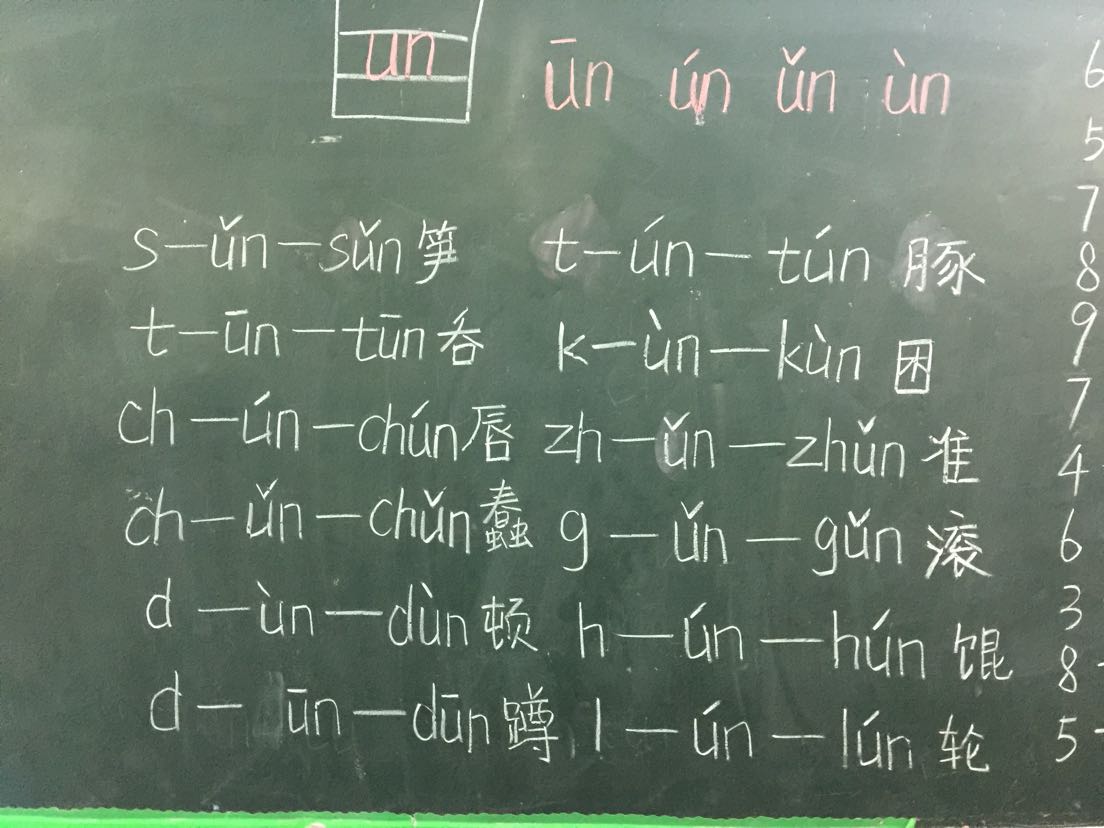 un ūn ún ǔn ùn
s—ǔn—sǔn笋 t—ún—tún 豚
t—ūn—tūn吞 k—ùn—kùn 困
ch—ún—chún唇 zh—ǔn—zhǔn 准
ch—ǔn—chǔn蠢 g—ǔn—gǔn 滚
d—ùn—dùn 顿 h—ún—hún 馄
d—ūn—dūn蹲 l—ún—lún 轮
6
5
7
8
9
7
4
6
3
8
5